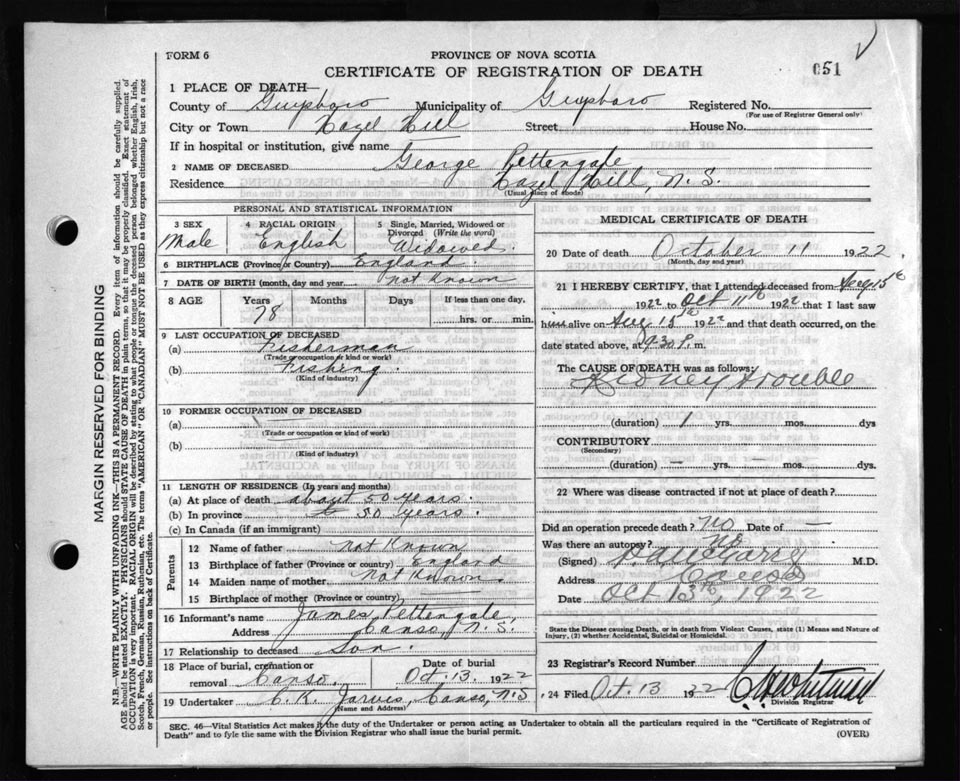 FORM 6
PROVINCE OF NOVA SCOTIA
CERTIFICATE OF REGISTRATION OF DEATH
051
1 PLACE OF DEATH—
County of Guysboro Municipality of Guysboro Registered No.
(For use of Registrar General only)
City or Town Hazel Hill Street House No.
If in hospital or institution, give name
2 NAME OF DECEASED George Pettengale
Residence Hazel Hill, N. S.
(Usual place of abode)
PERSONAL AND STATISTICAL INFORMATION
3 SEX Male
4 RACIAL ORIGIN English
5 Single, Married, Widowed or Divorced (Write the word) Widowed.
6 BIRTHPLACE (Province or Country) England.
7 DATE OF BIRTH (month, day and year) Not Known
8 AGE Years Months Days If less than one day,
78 hrs. or min.
9 LAST OCCUPATION OF DECEASED
(a) Fisherman
(Trade or occupation or kind of work)
(b) Fishing.
(Kind of industry)
10 FORMER OCCUPATION OF DECEASED
(a)
(Trade or occupation or kind of work)
(b)
(Kind of industry)
11 LENGTH OF RESIDENCE (In years and months)
(a) At place of death about 50 years.
(b) In province 50 years.
(c) In Canada (if an immigrant)
Parents
12 Name of father Not Known
13 Birthplace of father (Province or country) England
14 Maiden name of mother Not Known.
15 Birthplace of mother (Province or Country)
16 Informant's name James Pettengale
Address Canso, N. S.
17 Relationship to deceased Son.
18 Place of burial, cremation or removal Canso. Date of burial Oct. 13. 1922
19 Undertaker C. K. Jarvis, Canso, N.S
(Name and Address)
MEDICAL CERTIFICATE OF DEATH
20 Date of death October 11 1922.
(Month, day and year)
21 I HEREBY CERTIFY, that I attended deceased from Aug 15th
1922 to Oct 11th 1922 that I last saw
him alive on Aug 15th 1922 and that death occurred, on
date stated above, at 9.30 P. m.
The CAUSE OF DEATH was as follows:
Kidney trouble
(duration) 1 yrs. mos. dys
CONTRIBUTORY
(Secondary)
(duration) — yrs. — mos. dys.
22 Where was disease contracted if not at place of death?
Did an operation precede death? No Date of —
Was there an autopsy? No
(Signed) M.D.
Address
Date Oct 13th, 1922
State the Disease causing Death, or in death from Violent Causes, state (1) Means and Nature of
Injury, (2) whether Accidental, Suicidal or Homicidal.
23 Registrar's Record Number
24 Filed Oct. 13 1922 C H Whitman
Division Registrar
SEC. 46—Vital Statistics Act makes it the duty of the Undertaker or person acting as Undertaker to obtain all the particulars required in the "Certificate of Registration of
Death" and to fyle the same with the Division Registrar who shall issue the burial permit. (OVER)
MARGIN RESERVED FOR BINDING
N.B.—WRITE PLAINLY, WITH UNFADING INK—THIS IS A PERMANENT RECORD. Every item of information should be carefully supplied.
AGE should be stated EXACTLY. PHYSICIANS should STATE CAUSE OF DEATH in plain terms, so that it may be properly classified. Exact statement of
OCCUPATION is very important. RACIAL ORIGIN will be described by stating to what people or tongue the deceased person belonged whether English, Irish,
Scotch, French, German, Russian, Ruthenian, etc. The terms "AMERICAN" or "CANADIAN" MUST NOT BE USED as they express citizenship but not a race
or people. See instructions on back of Certificate.